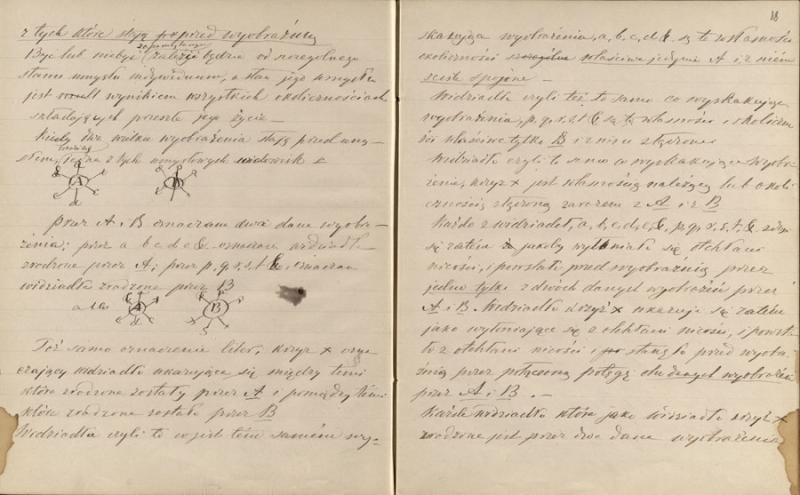 z tych które stają przed wyobraźnią
Być lub niebyć zależeć będzie od szczególnego
stanu umysłu indywiduum, a stan jego umysłu
jest wynikiem wszystkich okolicznościach
składających przeszłe jego życie —
Kiedy dwa wyobrażenia stają przed umy-
słem, z tych umysłowych
A
przez A i B oznaczam dwa dane wyobra-
żenia; przez a b c d e & oznaczam widziadła
zrodzone przez A; przez p, q, r, s, t &, oznaczam
widziadła zrodzone przez B
A B
Toż samo oznaczenie liter, krzyż x ozna-
czający widziadło ukazujące się między temi
które zrodzone zostały przez A i pomiędzy temi
które zrodzone zostały przez B
Widziadła czyli to co jest tém samém wy-
18
skakująca wyobrażenia, a, b, c, d, & są to własności
okoliczności właściwe jedynie A i z niém
ściśle spojone —
Widziadła czyli też to samo co wyskakujące
wyobrażenia, p, q, r, s, t & są to własności i okoliczno-
ści właściwe tylko B i z niém złączone
Widziadło czyli to samo co wyskakujące wyobra-
żenie, krzyż x jest własnością należącą lub okoli-
cznością złączoną zarazem z A i z B
Każde z widziadeł, a, b, c, d, e, &, p, q, r, s, t, & zdaje
się zatém jakoby wyłaniało się z otchłani
nicości, i powstało przed wyobraźnią przez
jedne tylko z dwóch danych wyobrażeń przez
A i B. Widziadło krzyż x ukazuje się zatém
jako wyłaniające się z otchłani nicości, i powsta-
ło z otchłani nicości i stanęło przed wyobra-
źnią przez połączoną potęgę obudwóch wyobrażeń
przez A i B. —
Każde widziadło które jako widziadło krzyż x
zrodzone jest przez dwa dane wyobrażenia